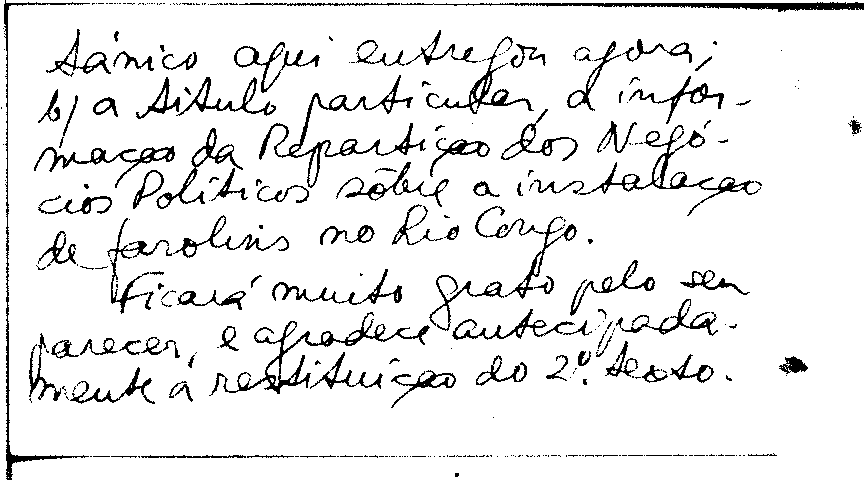 tânico aqui entregou agora;
b) a título particular, a infor-
mação da Repartição dos Negó-
cios Políticos sôbre a instalação
de farolins no Rio Congo.
Ficará muito grato pelo seu
parecer, e agradece antecipada-
mente a restituição do 2º. texto.